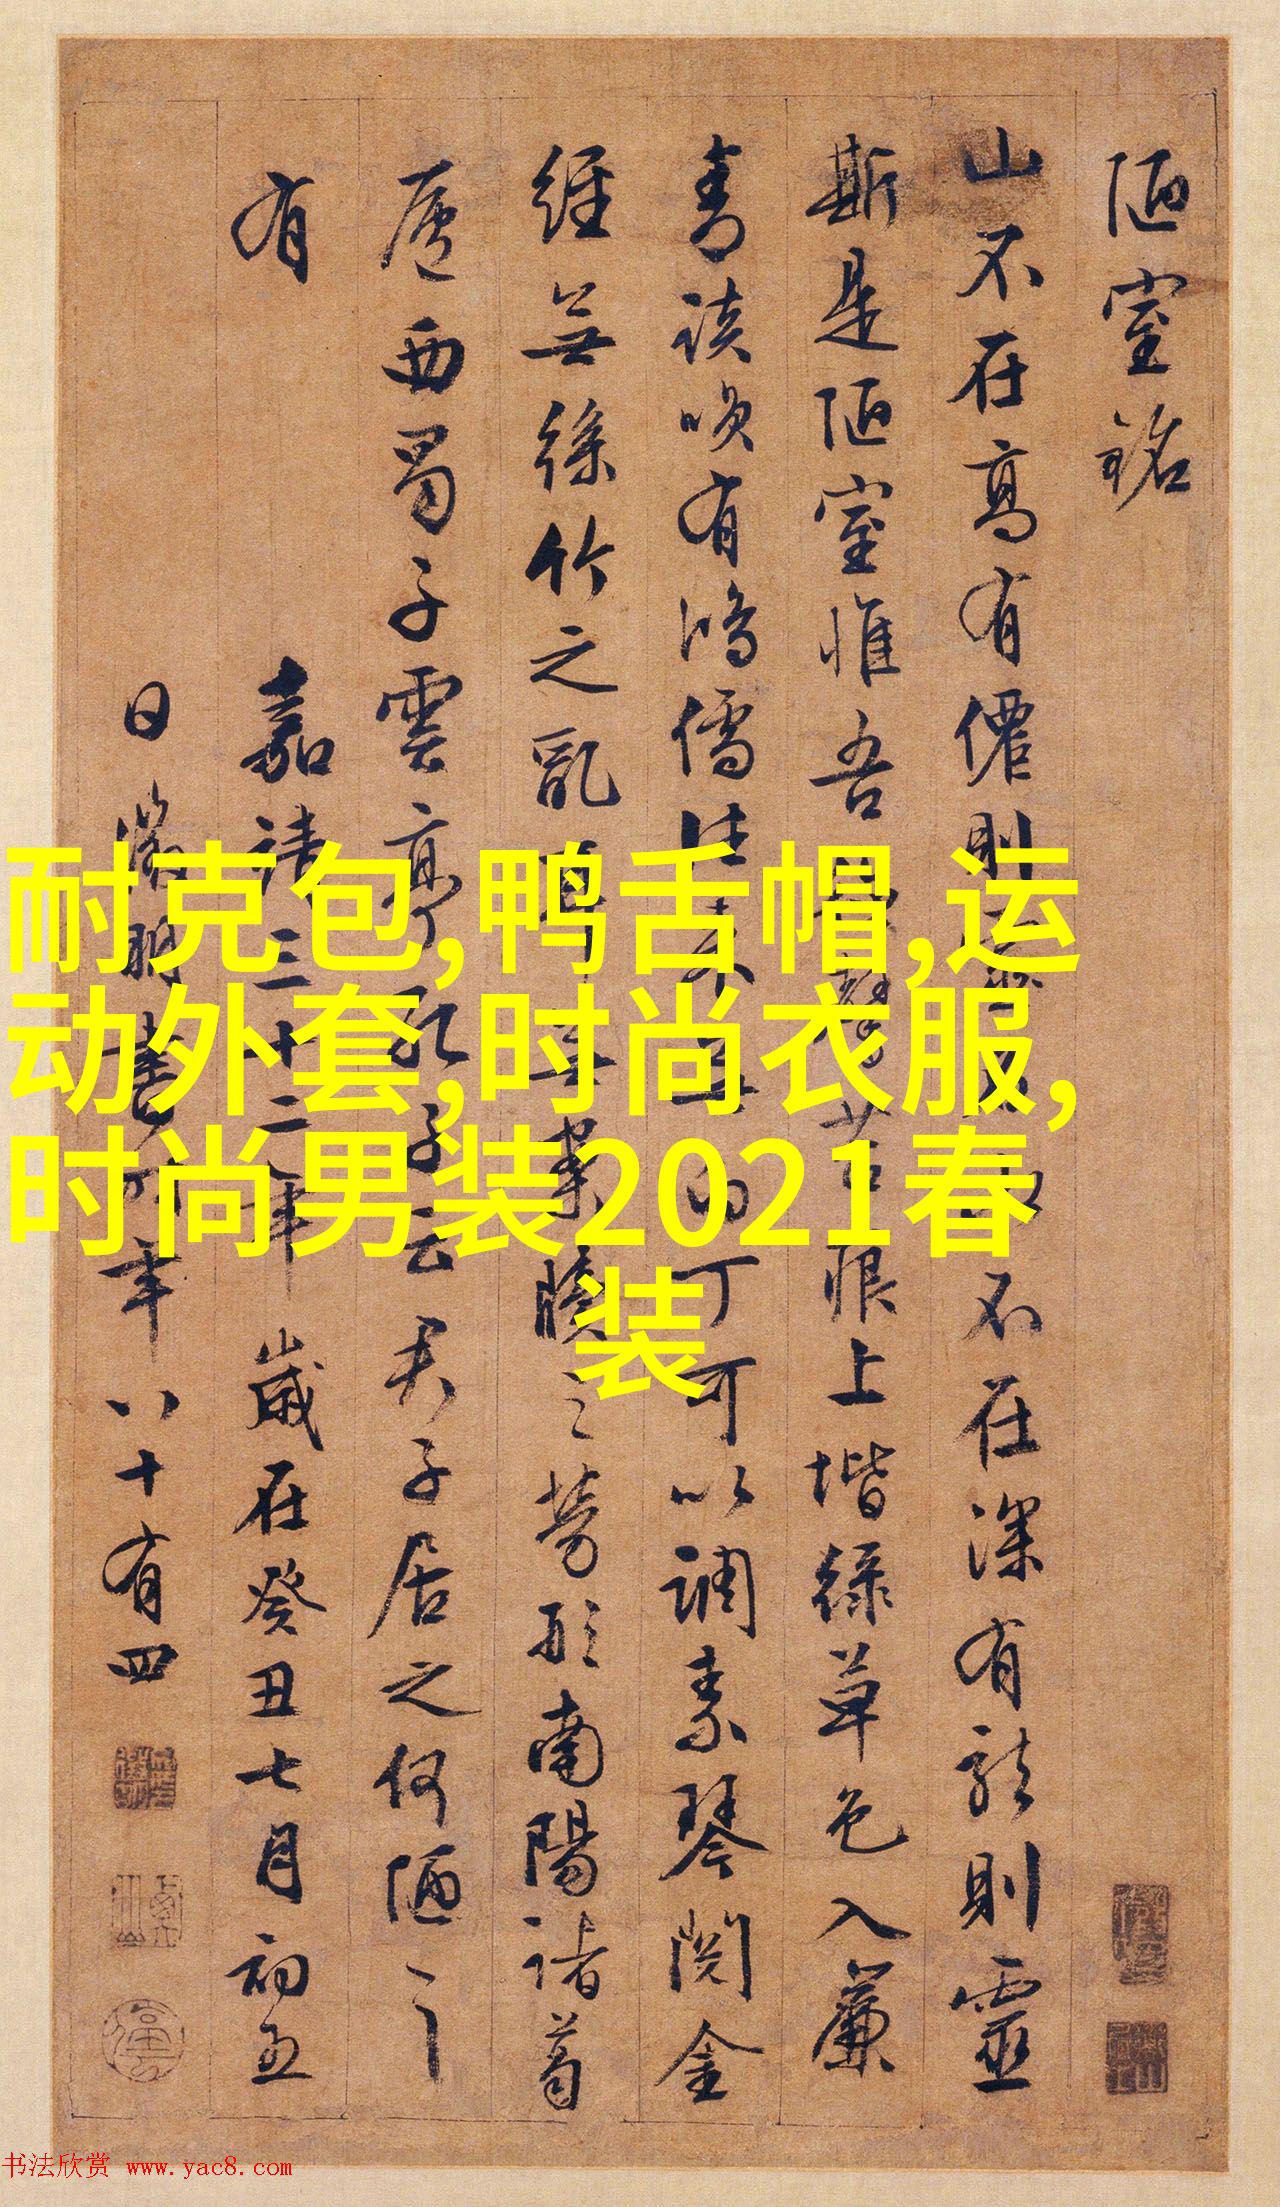 陋室銘
山不在高有僊則不在深有龍則靈
斯是陋室惟吾苔痕上堦綠草色入簾
青談咲有鴻儒往来白丁可以調素琴閱金
經無絲竹之亂無案牘之勞形南陽諸葛
廬西蜀子雲亭孔子云君子居之何陋之
有
嘉靖三十二年歲在癸丑七月初五
日徵明書時年八十有四
耐克包,鸭舌帽,运
动外套,时尚衣服,
时尚男装2021春
装
书法欣赏 www.yac8.com